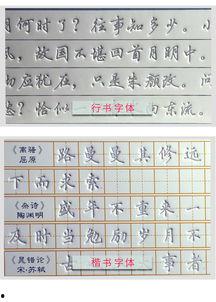 月何时了？往事知多少。小
风，故国不堪回首月明中。
砌应犹在，只是朱颜改。问
愁？恰似 向东流。
行书字体
《离骚》
屈原
路曼曼其修远
下而求索
《杂诗》
陶渊明
盛年不重来一
及时当勉励岁月不
《晁错论》
宋·苏轼
古 事者
楷书字体